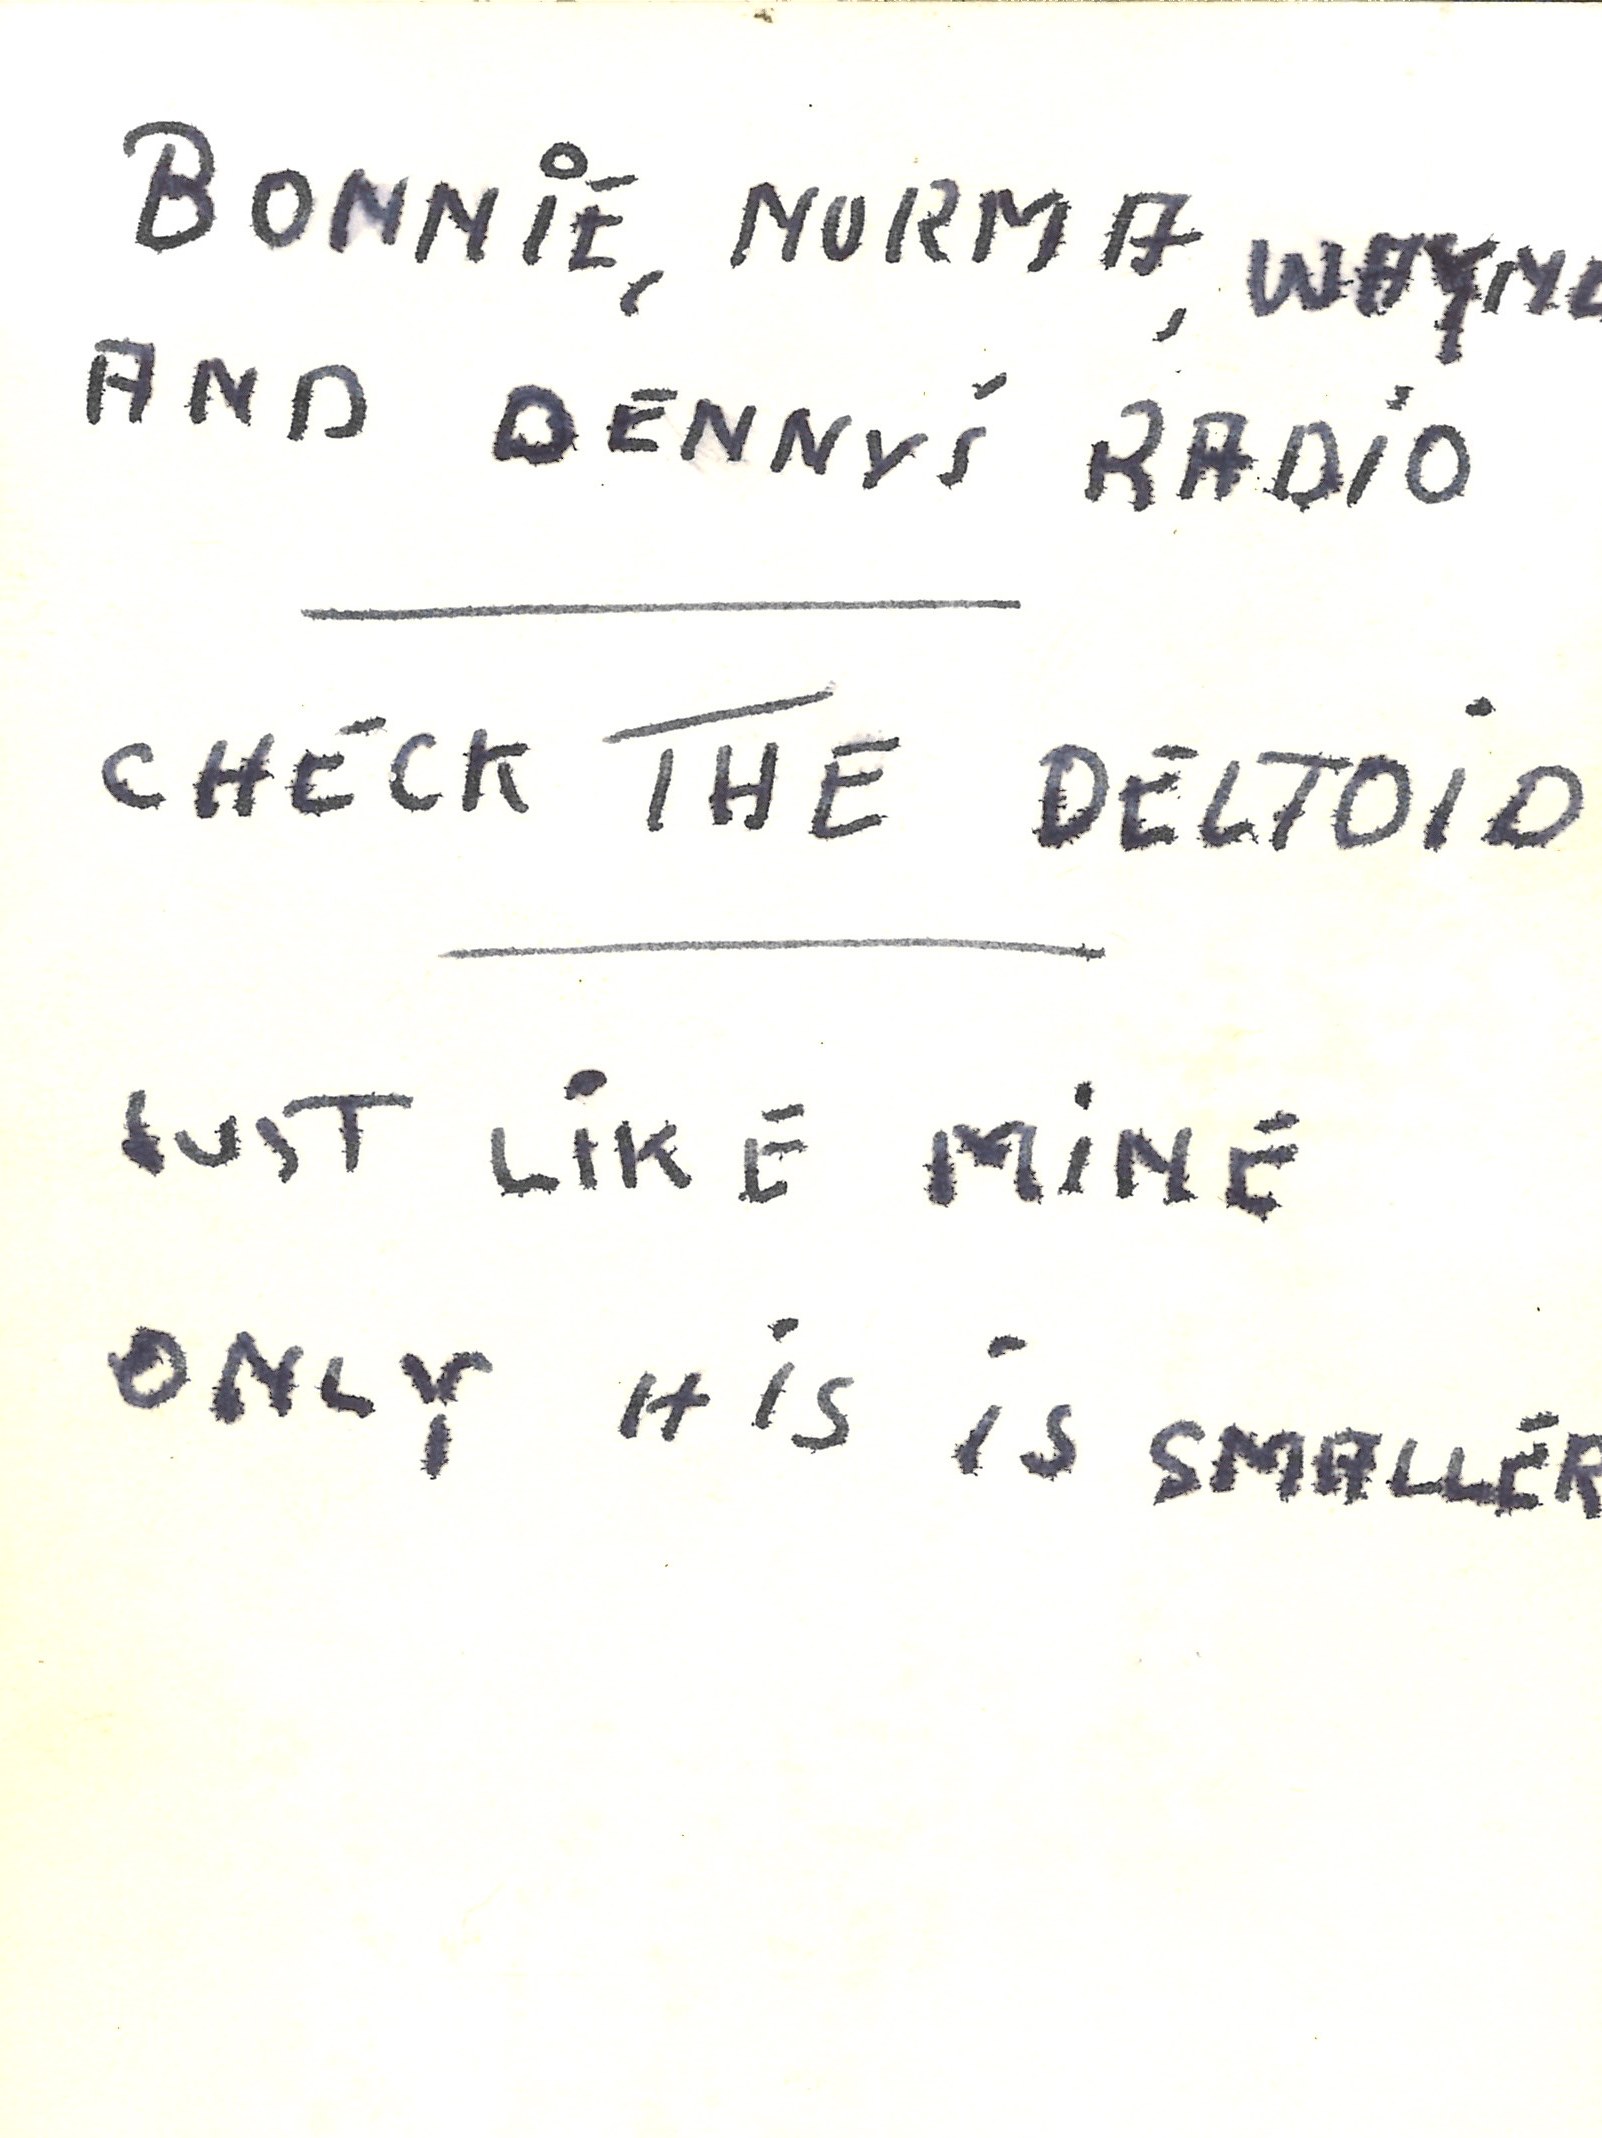 BONNiE, NORMA, WAYNE
AND DENNY'S RADiO
CHECK THE DELTOiD
JUST LiKE MiNE
ONLY HiS iS SMALLER